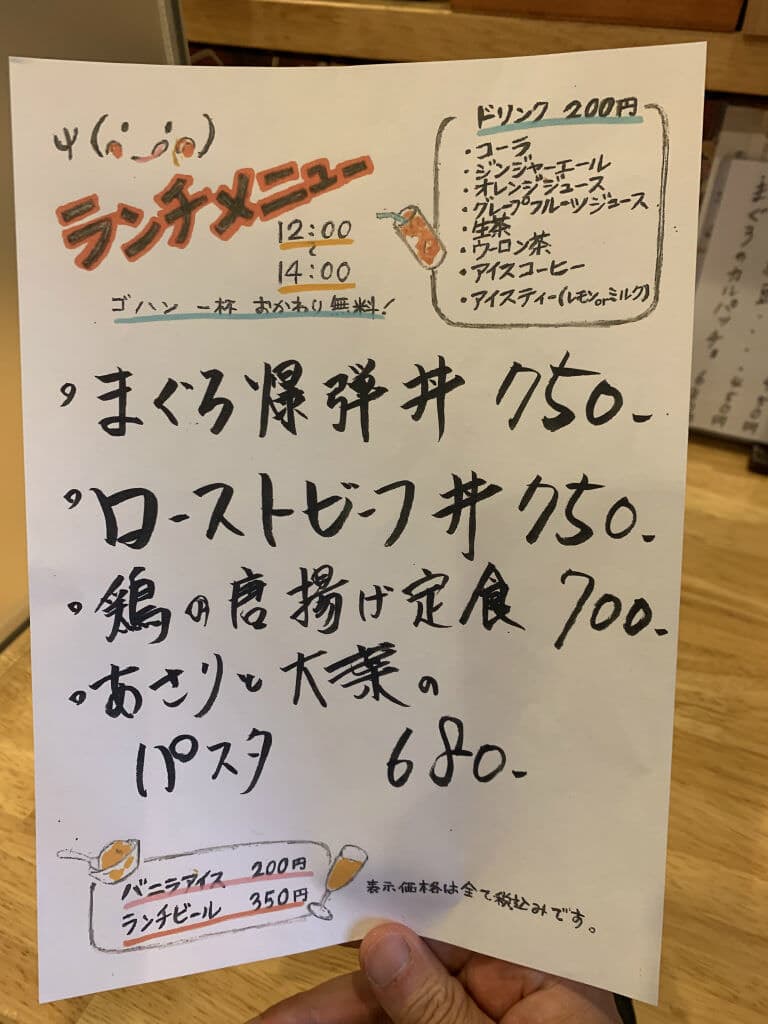 ランチメニュー
12:00
～
14:00
ゴハン 一杯 おかわり無料！
ドリンク 200円
・コーラ
・ジンジャーエール
・オレンジジュース
・グレープフルーツジュース
・生茶
・ウーロン茶
・アイスコーヒー
・アイスティー(レモンorミルク)
・まぐろ爆弾丼 750-
・ローストビーフ丼 750-
・鶏の唐揚げ定食 700-
・あさりと大葉の
パスタ 680-
バニラアイス 200円
ランチビール 350円
表示価格は全て税込みです。
まぐろのカルパッチョ